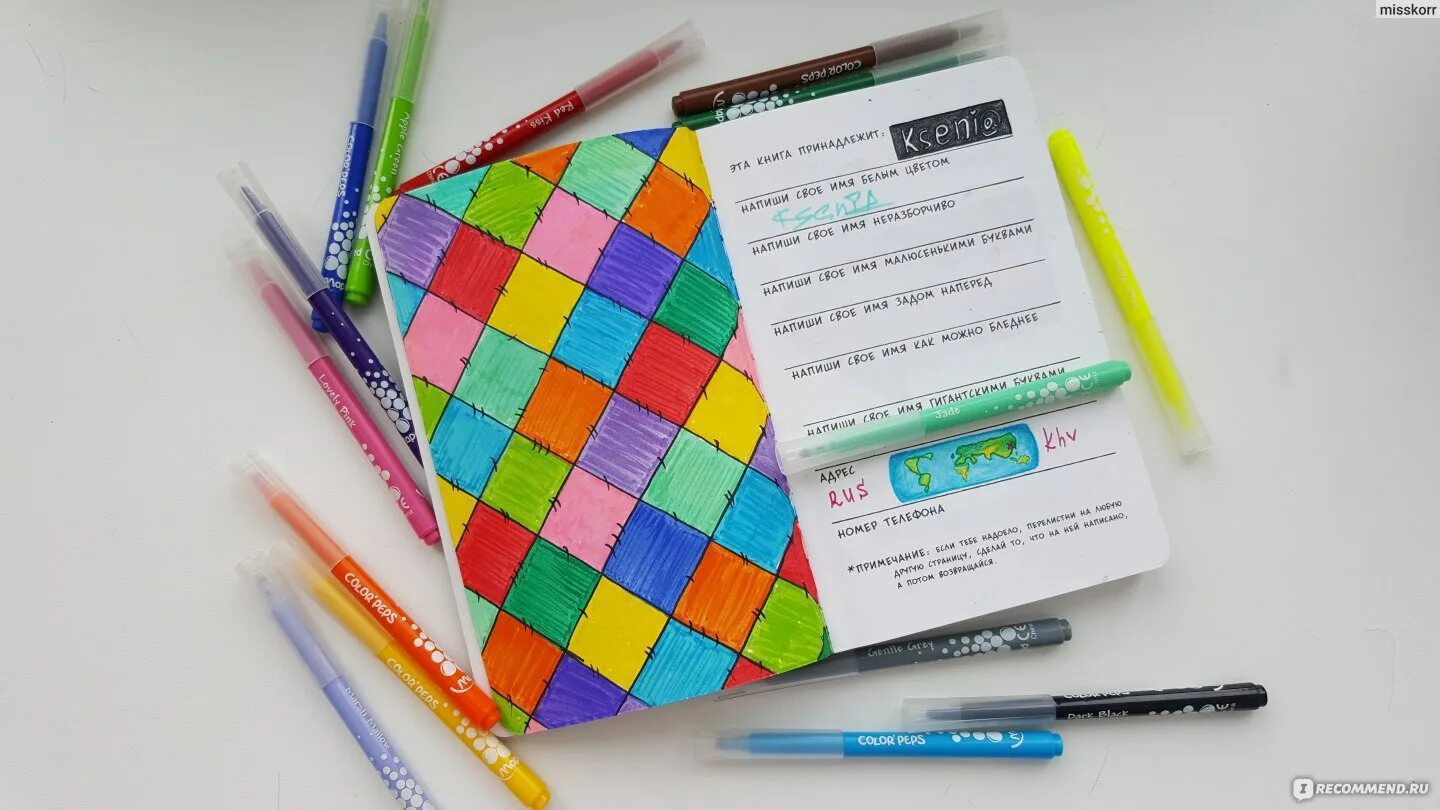 misskorr
ЭТА КНИГА ПРИНАДЛЕЖИТ: Kseni@
НАПИШИ СВОЕ ИМЯ БЕЛЫМ ЦВЕТОМ
KseniA
НАПИШИ СВОЕ ИМЯ НЕРАЗБОРЧИВО
НАПИШИ СВОЕ ИМЯ МАЛЮСЕНЬКИМИ БУКВАМИ
НАПИШИ СВОЕ ИМЯ ЗАДОМ НАПЕРЕД
НАПИШИ СВОЕ ИМЯ КАК МОЖНО БЛЕДНЕЕ
НАПИШИ СВОЕ ИМЯ ГИГАНТСКИМИ БУКВАМИ
Jade
АДРЕС
RUS
Khv
НОМЕР ТЕЛЕФОНА
*ПРИМЕЧАНИЕ: ЕСЛИ ТЕБЕ НАДОЕЛО, ПЕРЕЛИСТНИ НА ЛЮБУЮ
ДРУГУЮ СТРАНИЦУ, СДЕЛАЙ ТО, ЧТО НА НЕЙ НАПИСАНО,
А ПОТОМ ВОЗВРАЩАЙСЯ.
COLOR'PEPS
Apple Green
Red Kiss
COLOR'PEPS
Lovely Pink
COLOR'PEPS
COLOR'PEPS
Gentle Grey
COLOR'PEPS
Dark Black
COLOR'PEPS
IRECOMMEND.RU